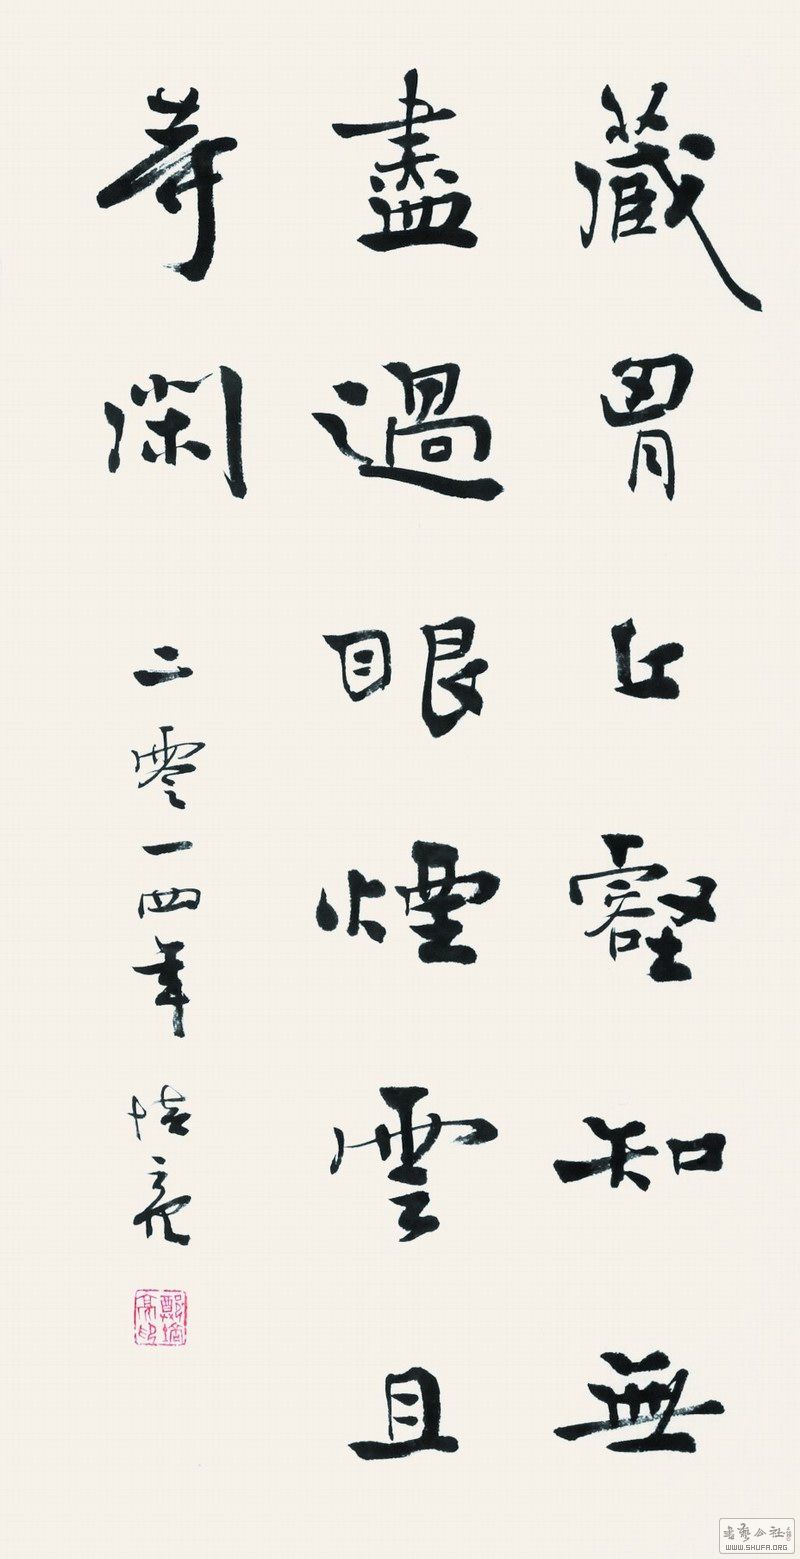 藏胷丘壑知無
盡過眼煙雲且
等閑
二零一四年 培亮
鄭培亮印
書藝公社
WWW.SHUFA.ORG